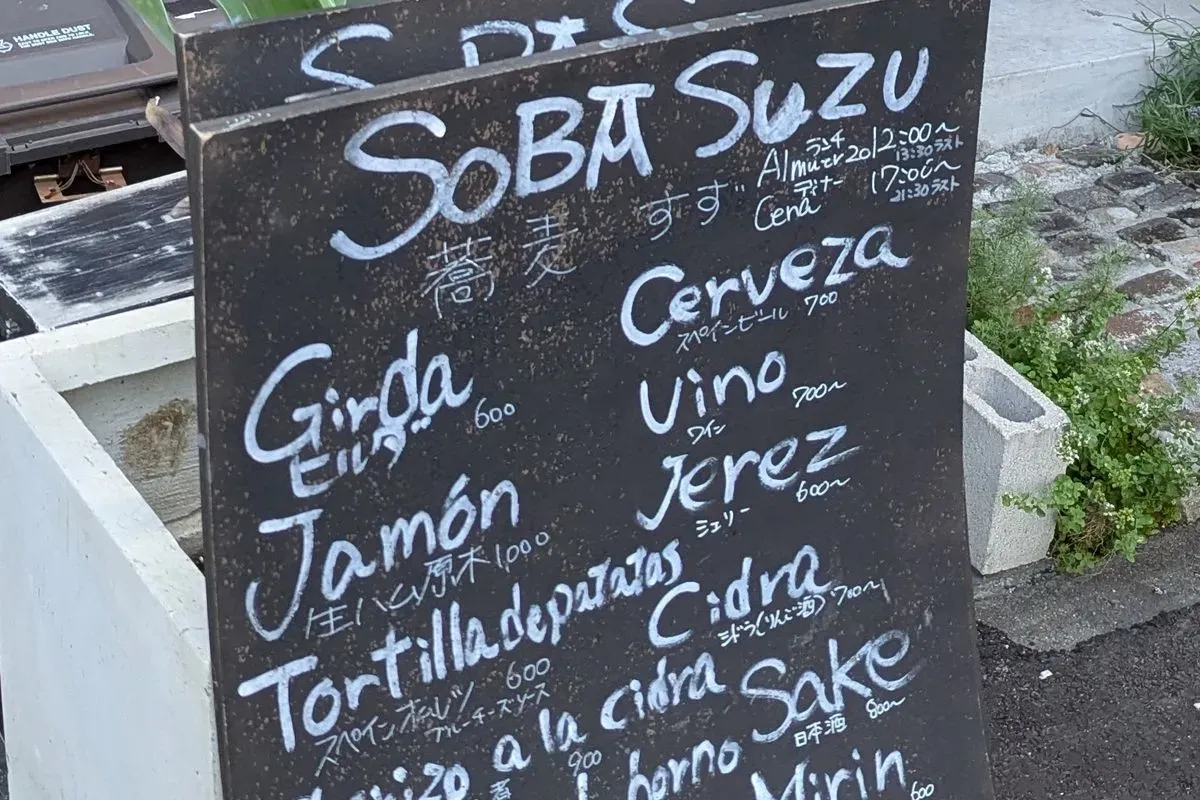 HANDLE DUST
SOBA SUZU
蕎麦 すず
ランチ
Almuerzo 12:00〜
13:30ラスト
ディナー
Cena 17:00〜
21:30ラスト
Cerveza
スペインビール 700
Girda 600
ヒルダ
Vino 700〜
ワイン
Jamón
生ハム原木 1000
Jerez 600〜
シェリー
Tortilla de patatas
スペインオムレツ 600
ブルーチーズソース
Cidra
シドラ(りんご酒) 700〜
a la cidra
900
Sake
日本酒 800〜
horno
Mirin 600